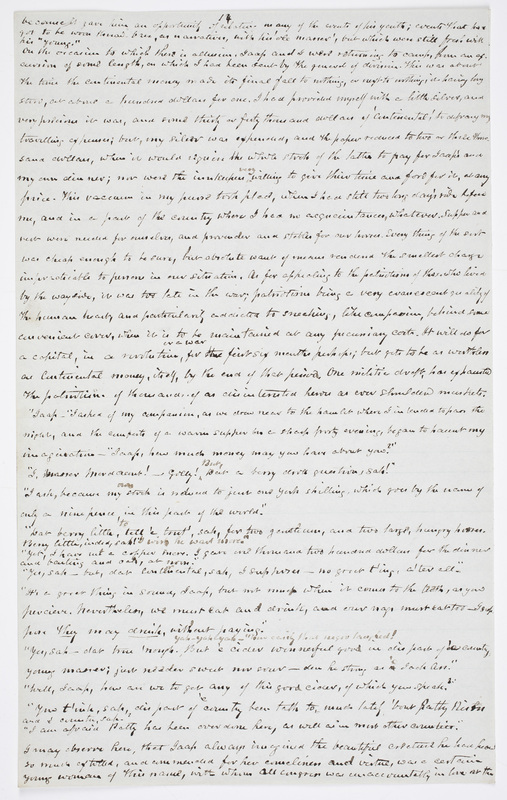 14
be canvassed gave him an opportunity of relating many of the events of his youth; events that had
got to be worn threadbare, as narrative, with his 'ole masser', but which were still fresh with
his "young."
On the occasion to which there is allusion, Jaap and I were returning to camp, from an ex-
cursion of some length, on which I had been sent by the general of division. This was about
the time the continental money made its final fall to nothing, or next to nothing, it having long
stood, at about a hundred dollars for one. I had provided myself with a little silver, and
very precious it was, and some thirty or forty thousand dollars of "continental," to defray my
travelling expenses; but, my silver was expended, and the paper reduced to two or three thou-
sand dollars, when it would require the whole stock of the latter to pay for Jaap's and
my own dinner; nor were the inn-keepers very willing to give their time and food for it, at any
price. This vacuum in my purse took place, when I had still two long days' ride before
me, and in a part of the country where I had no acquaintances, whatever. Supper and
rest were needed for ourselves, and provender and stabling for our horses. Every thing of the sort
was cheap enough to be sure, but absolute want of means rendered the smallest charge
impracticable to persons in our situation. As for appealing to the patriotism of those who lived
by the way-side, it was too late in the war; patriotism being a very evanescent quality of
the human heart, and particularly addicted to sneaking, like compassion, behind some
convenient cover, when it is to be maintained at any pecuniary cost. It will do for
a capital, in a revolution, or a war for the first six months perhaps; but gets to be as worthless
as continental money, itself, by the end of that period. One militia draft has exhausted
the patriotism of thousands of as disinterested heroes as ever shouldered muskets.
"Jaap" I asked of my companion, as we drew near to the hamlet where I intended to pass the
night, and the comforts of a warm supper on a sharp frosty evening, began to haunt my
imagination—"Jaap, how much money may you have about you?"
"I, Masser Mordaunt!—Golly! but dat a berry droll question, sah!"
"I ask, because my own stock is reduced to just one York shilling, which goes by the name of
only a ninepence, in this part of the world."
"Dat berry little, to tell 'e truit', sah, for two gentleum, and two large, hungry hosses.
Berry little, indeed, sah! I wish he war' more."
"Yet, I have not a copper more. I gave one thousand two hundred dollars for the dinner
and baiting and oats, at noon."
"Yes, sah—but, dat conternental, sah, I supposes—no great t'ing, a'ter all."
"It's a great thing in sound, Jaap, but not much when it comes to the teeth, as you
perceive. Nevertheless, we must eat and drink, and our nags must eat too—I sup-
pose they may drink, without paying."
"Yes, sah—dat true 'nough. yah—yah—yah— But 'e cider wonnerful good in dis part of 'e country,
young masser; just needer sweet nor sour—den he strong as 'e Jack Ass."
"Well, Jaap, how are we to get any of this good cider, of which you speak?"
"You t'ink, sah, dis part of 'e country been talk to much lately 'bout Patty Rism
and 'e country, sah?"
"I am afraid Patty has been overdone here, as well as in most other counties."
I may observe here, that Jaap always imagined the beautiful creature he had heard
so much extolled, and commended for her comeliness and virtue, was a certain
young woman of this name, with whom all congress was unaccountably in love at the